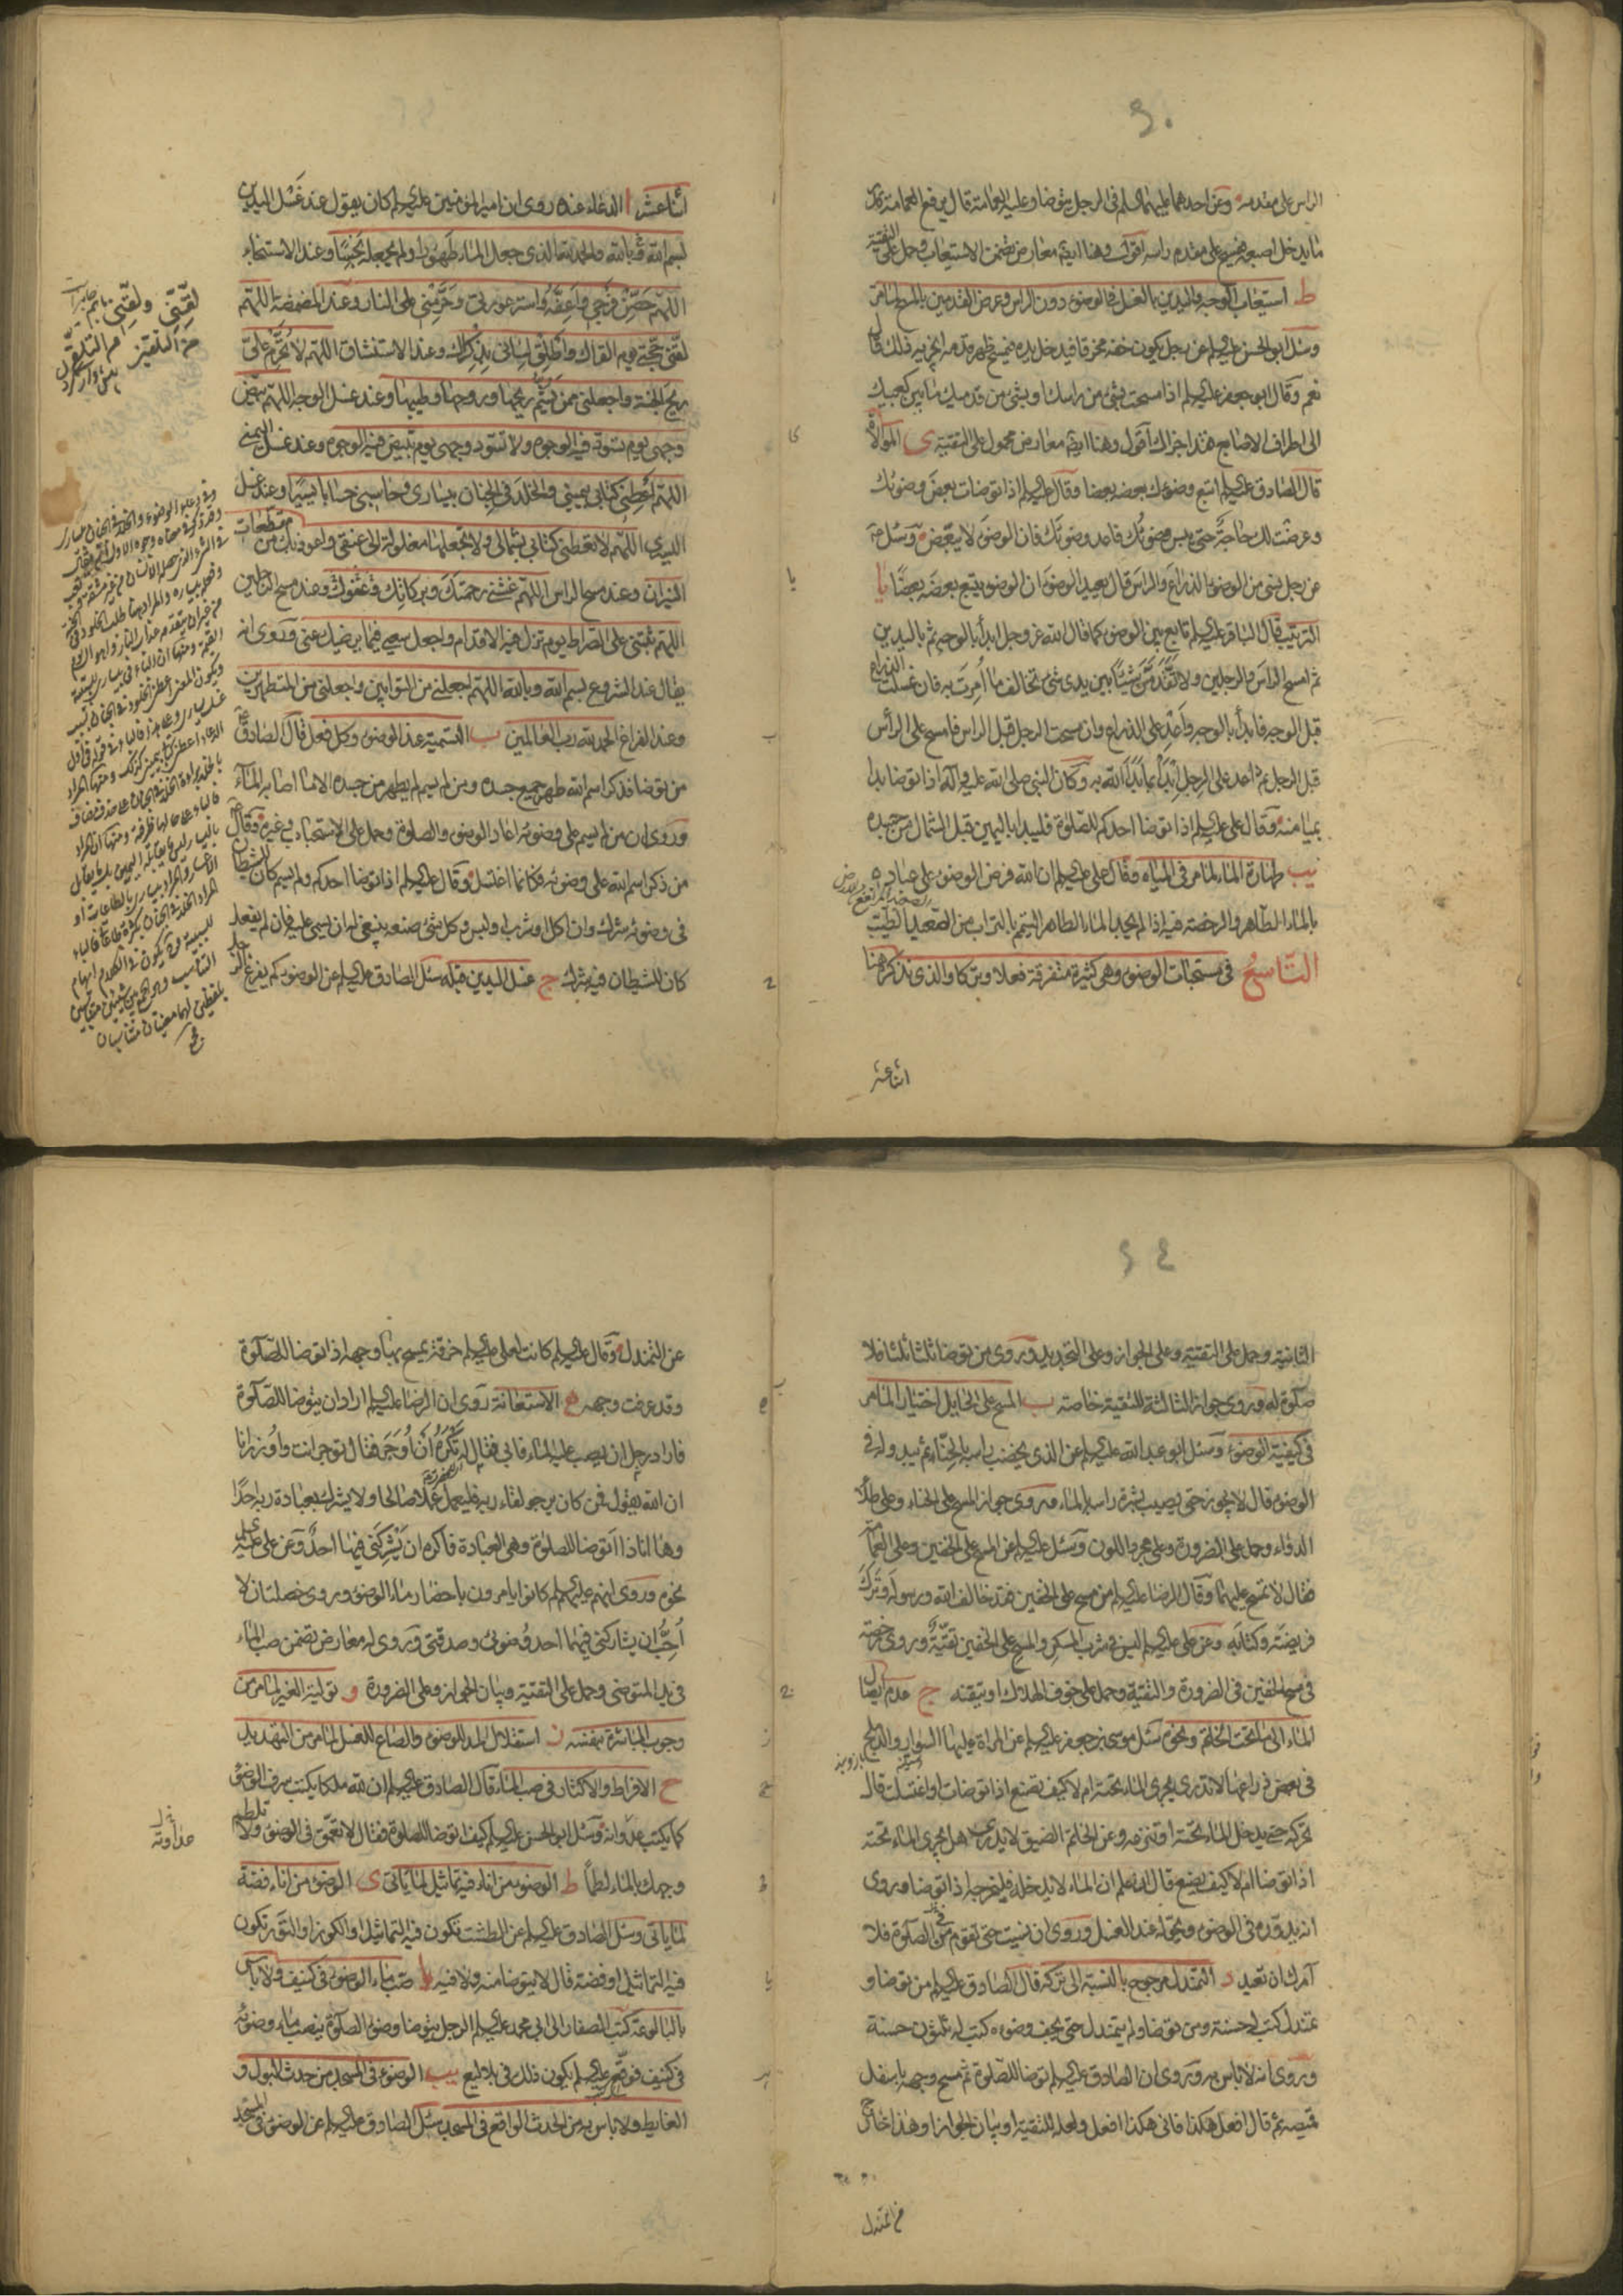 الراس على مقدمه وعن احدهما عليهما السلام فى الرجل يتوضا وعليه العمامة قال يرفع العمامة بقدر
ما يدخل اصبعه فيمسح على مقدم راسه اقول وهنا ايضم معارض تضمن الاستيعاب وحمل على التقية
ط استيعاب الوجه واليدين بالغسل فى الوضوء دون الراس وعرض القدمين بالمسح لما مر
وسئل ابو الحسن عليه السلام عن رجل يكون خفه مخرقا فيدخل يده فيمسح ظهر قدمه ايجزيه ذلك قال
نعم وقال ابو جعفر عليه السلام اذا مسحت بشئ من راسك او بشئ من قدميك ما بين كعبيك
الى اطراف الاصابع فقد اجزاك اقول وهنا ايضم معارض محمول على التقية ى الموالاة
قال الصادق عليه السلام اتبع وضوئك بعضه بعضا وقال عليه السلام اذا توضات بعض وضوئك
وعرضت لك حاجة حتى يبس وضوئك فاعد وضوئك فان الوضوء لا يبعض وسئل عمن
عن رجل نسى من الوضوء الذراع والراس قال يعيد الوضوء ان الوضوء يتبع بعضه بعضا يا
الترتيب قال الباقر عليه السلام تابع بين الوضوء كما قال الله عز وجل ابدأ بالوجه ثم باليدين
ثم امسح الراس والرجلين ولا تقدمن شيئا بين يدى شئ تخالف ما امرت به فان غسلت الذراع
قبل الوجه فابدأ بالوجه واعد على الذراع وان مسحت الرجل قبل الراس فامسح على الرأس
قبل الرجل ثم اعد على الرجل ابدأ بما بدأ الله به وكان النبى صلى الله عليه وآله اذا توضا بدا
بميامنه وقال على عليه السلام اذا توضا احدكم للصلوة فليبدا باليمين قبل الشمال من جسده
يب طهارة الماء لما مر فى المياه وقال على عليه السلام ان الله فرض الوضوء على عباده
بالماء الطاهر والرخصة فيه اذا لم يجد الماء الطاهر التيمم بالتراب من الصعيد الطيب
التاسع فى مستحبات الوضوء وهى كثيرة متفرقة فعلا وتركا والذى نذكر هنا
اثنا عشر
اثنا عشر ا الدعاء عنده روى ان امير المؤمنين عليه السلام كان يقول عند غسل اليدين
بسم الله وبالله والحمد لله الذى جعل الماء طهورا ولم يجعله نجسا وعند الاستنجاء
اللهم حصن فرجى واعفه واستر عورتى وحرمنى على النار وعند المضمضة اللهم
لقنى حجتى يوم القاك واطلق لسانى بذكرك وعند الاستنشاق اللهم لا تحرم على
ريح الجنة واجعلنى ممن يشم ريحها وروحها وطيبها وعند غسل الوجه اللهم بيض
وجهى يوم تسود فيه الوجوه ولا تسود وجهى يوم تبيض فيه الوجوه وعند غسل اليمنى
اللهم اعطنى كتابى بيمينى والخلد فى الجنان بيسارى وحاسبنى حسابا يسيرا وعند غسل
اليسرى اللهم لا تعطنى كتابى بشمالى ولا تجعلها مغلولة الى عنقى واعوذ بك من مقطعات
النيران وعند مسح الراس اللهم غشنى رحمتك وبركاتك وعفوك وعند مسح الرجلين
اللهم ثبتنى على الصراط يوم تزل فيه الاقدام واجعل سعيى فيما يرضيك عنى وروى انه
يقال عند الشروع بسم الله وبالله اللهم اجعلنى من التوابين واجعلنى من المتطهرين
وعند الفراغ الحمد لله رب العالمين ب التسمية عند الوضوء وكل فعل قال الصادق
من توضا فذكر اسم الله طهر جميع جسده ومن لم يسم لم يطهر من جسده الا ما اصابه الماء
وروى ان من لم يسم على وضوئه اعاد الوضوء والصلوة وحمل على الاستحباب وغيره وقال
من ذكر اسم الله على وضوئه فكانما اغتسل وقال عليه السلام اذا توضا احدكم ولم يسم كان للشيطان
فى وضوئه شرك وان اكل او شرب او لبس وكل شئ صنعه ينبغى له ان يسمى عليه فان لم يفعل
كان للشيطان فيه شرك ج غسل اليدين قبله سئل الصادق عليه السلام عن الوضوء كم يفرغ الرجل
الثانية وحمل على التقية وعلى الجواز وعلى التجديد وروى من توضا ثلثا ثلثا فلا
صلوة له وروى جواز الثالثة للتقية خاصة ب المسح على الحايل اختيارا لما مر
فى كيفية الوضوء وسئل ابو عبد الله عليه السلام عن الذى يخضب راسه بالحناء ثم يبدو له فى
الوضوء قال لا يجوز حتى يصيب بشرة راسه الماء وروى جواز المسح على الحناء وعلى طلاء
الدواء وحمل على الضرورة وعلى مجرد اللون وسئل عليه السلام عن المسح على الخفين وعلى العمامة
فقال لا تمسح عليهما وقال الرضا عليه السلام من مسح على الخفين فقد خالف الله ورسوله وترك
فريضته وكتابه وعن على عليه السلام ليس فى شرب المسكر والمسح على الخفين تقية وروى رخصة
فى مسح الخفين فى الضرورة والتقية وحمل على خوف الهلاك او تيقنه ج عدم ايصال
الماء الى ما تحت الخاتم ونحوه سئل موسى بن جعفر عليه السلام عن المراة عليها السوار والدملج
فى بعض ذراعها لا تدرى يجرى الماء تحته ام لا كيف تصنع اذا توضات او اغتسلت قال
تحركه حتى يدخل الماء تحته او تنزعه وعن الخاتم الضيق لا يدرى هل يجرى الماء تحته
اذا توضا ام لا كيف يصنع قال ان علم ان الماء لا يدخله فليخرجه اذا توضا وروى
انه يديره فى الوضوء ويحوله عند الغسل وروى ان نسيت حتى تقوم فى الصلوة فلا
آمرك ان تعيد د التمندل مرجوح بالنسبة الى تركه قال الصادق عليه السلام من توضا و
تمندل كتب له حسنة ومن توضا ولم يتمندل حتى يجف وضوءه كتب له ثلثون حسنة
وروى انه لا باس به وروى ان الصادق عليه السلام توضا للصلوة ثم مسح وجهه باسفل
قميصه ثم قال افعل هكذا فانى هكذا افعل ولعله للتقية او بيان الجواز او هذا خارج
عن التمندل
عن التمندل وقال عليه السلام كانت لعلى عليه السلام خرقة يمسح بها وجهه اذا توضا للصلوة
وقد عرفت وجهه ه الاستعانة روى ان الرضا عليه السلام اراد ان يتوضا للصلوة
فاراد رجل ان يصب عليه الماء فابى فقيل له تكره ان اوجر فقال توجر انت واوزر انا
ان الله يقول فمن كان يرجو لقاء ربه فليعمل عملا صالحا ولا يشرك بعبادة ربه احدا
وها انا ذا اتوضا للصلوة وهى العبادة فاكره ان يشركنى فيها احد وعن على عليه السلام
نحوه وروى انهم عليهم السلام كانوا يامرون باحضار ماء الوضوء وروى خصلتان لا
احب ان يشاركنى فيهما احد وضوئى وصدقتى وروى له معارض تضمن صب الماء
فى يد المتوضى وحمل على التقية وبيان الجواز وعلى الضرورة و تولية الغير لما مر من
وجوب المباشرة بنفسه ز استقلال المد للوضوء والصاع للغسل لما مر من التهديد
ح الافراط والاكثار فى صب الماء قال الصادق عليه السلام ان لله ملكا يكتب سرف الوضوء
كما يكتب عدوانه وسئل ابو الحسن عليه السلام كيف اتوضا للصلوة فقال لا تعمق فى الوضوء ولا تلطم
وجهك بالماء لطما ط الوضوء من اناء فيه تماثيل لما ياتى ى الوضوء من اناء فضة
لما ياتى وسئل الصادق عليه السلام عن الطشت تكون فيه التماثيل او الكوز او التور تكون
فيه التماثيل او فضة قال لا يتوضا منه ولا فيه يا صب ماء الوضوء فى كنيف ولا باس
بالبالوعة كتب الصفار الى ابى محمد عليه السلام الرجل يتوضا وضوء الصلوة ينصب ماء وضوئه
فى كنيف فوقع عليه السلام يكون ذلك فى بلاليع يب الوضوء فى المسجد من حدث البول و
الغايط ولا باس به من الحدث الواقع فى المسجد سئل الصادق عليه السلام عن الوضوء فى المسجد